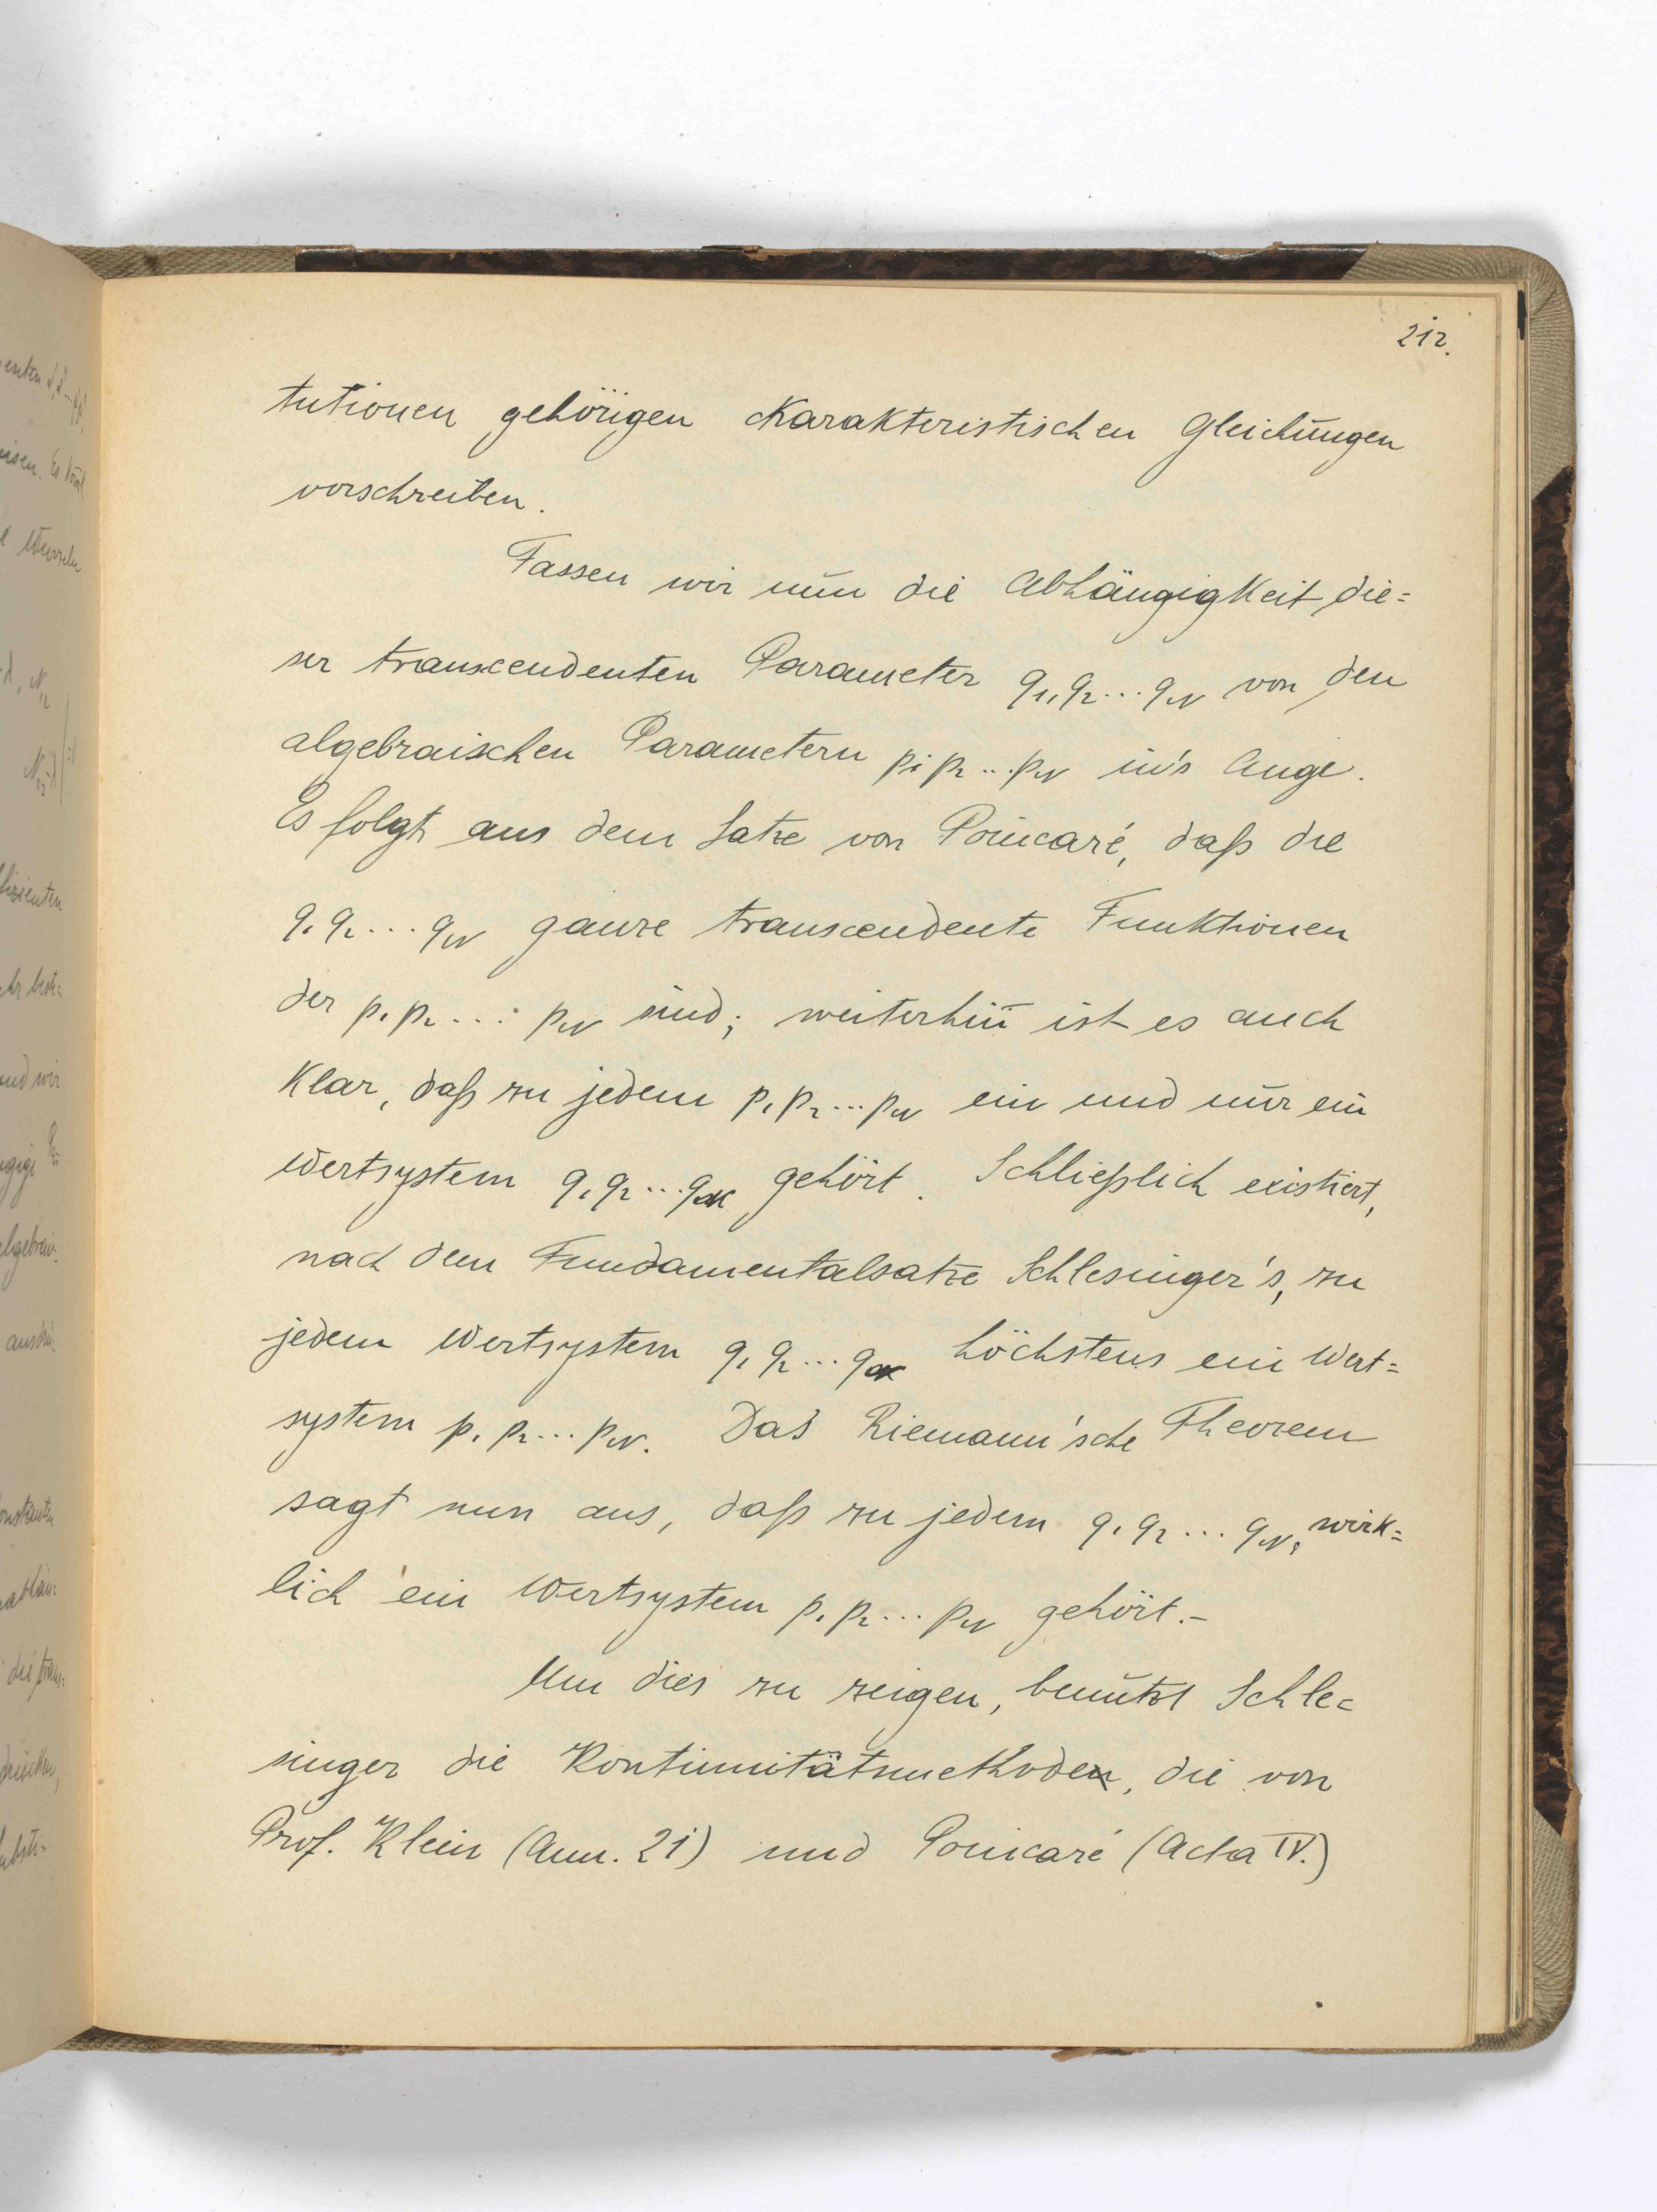 212.
tutionen gehörigen charakteristischen Gleichungen
vorschreiben.
Fassen wir nun die Abhängigkeit die=
ser transcendenten Parameter q₁, q₂ ... q_N von den
algebraischen Parametern p₁ p₂ ... p_N in's Auge.
Es folgt aus dem Satze von Poincaré, daß die
q₁ q₂ ... q_N ganze transcendente Funktionen
der p₁ p₂ ... p_N sind; weiterhin ist es auch
klar, daß zu jedem p₁ p₂ ... p_N ein und nur ein
Wertsystem q₁ q₂ ... q_N gehört. Schließlich existiert,
nach dem Fundamentalsatze Schlesinger's, zu
jedem Wertsystem q₁ q₂ ... q_N höchstens ein Wert=
system p₁ p₂ ... p_N. Das Riemann'sche Theorem
sagt nun aus, daß zu jedem q₁ q₂ ... q_N, wirk=
lich ein Wertsystem p₁ p₂ ... p_N gehört.-
Um dies zu zeigen, benützt Schle=
singer die Kontinuitätsmethode, die von
Prof. Klein (Ann. 21) und Poincaré (Acta IV.)